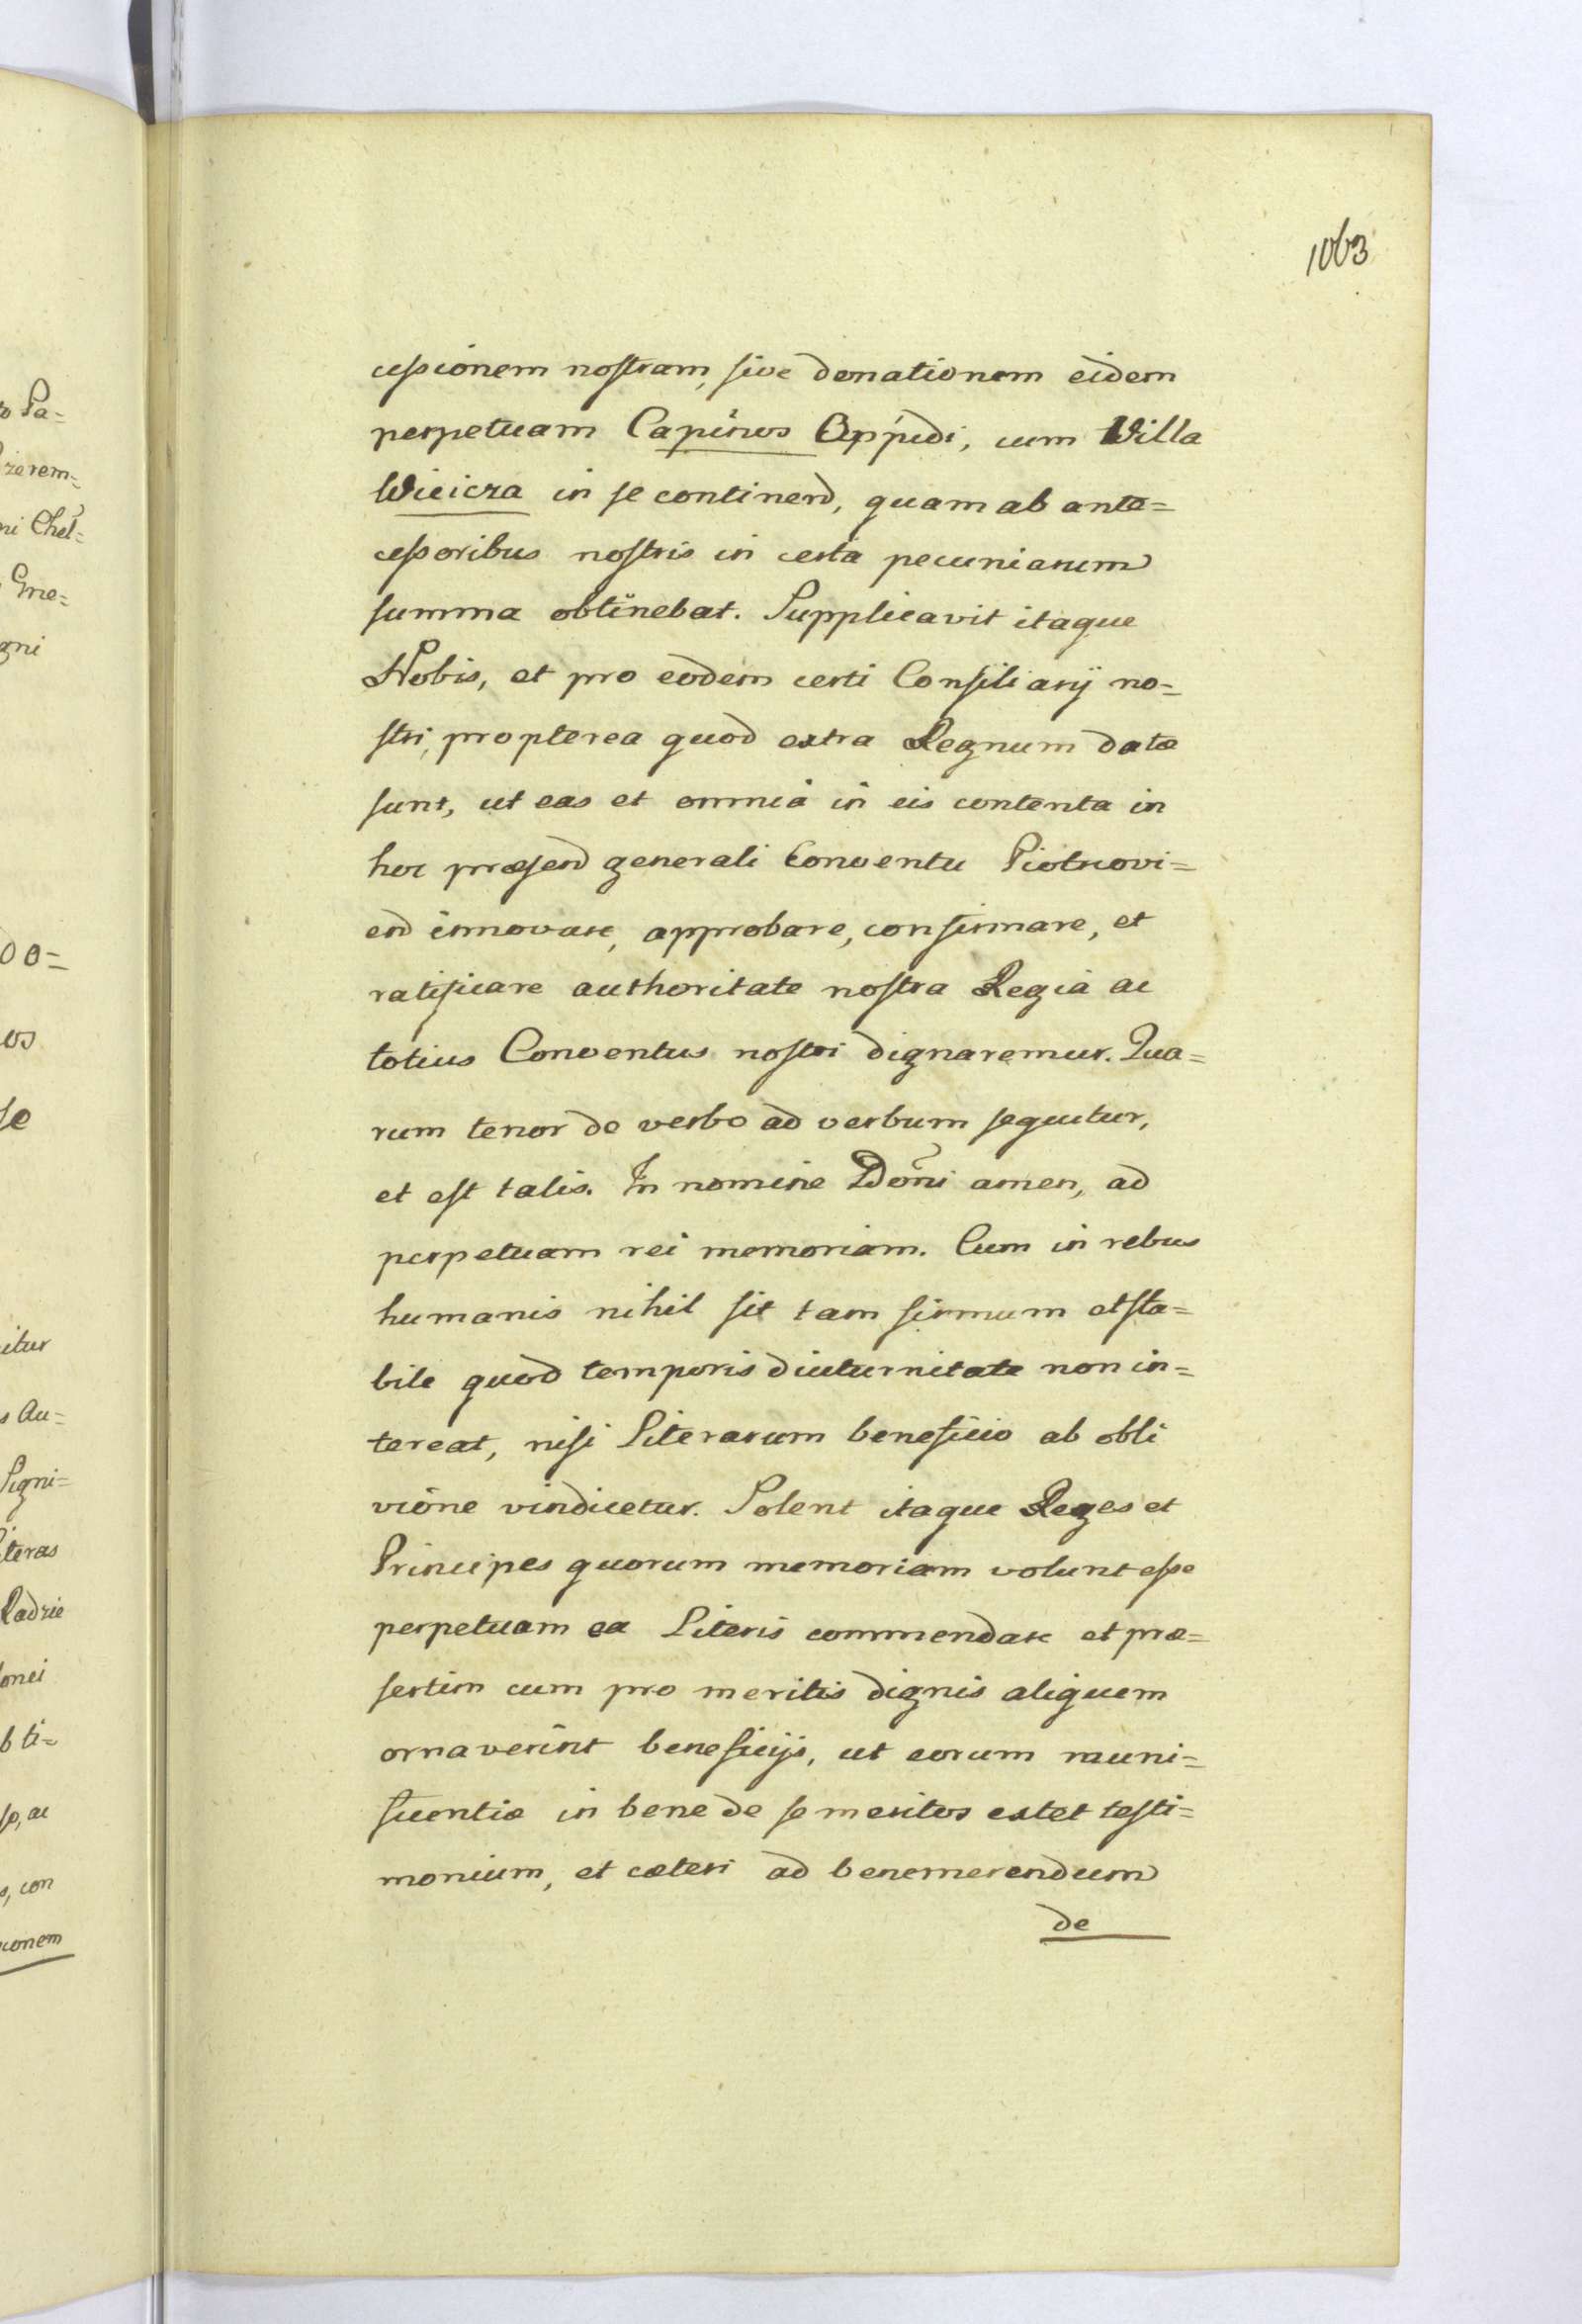 1063
cessionem nostram, sive donationem eidem
perpetuam Capinos Oppidi, cum Villa
Wieicza in se continend, quam ab ante=
cessoribus nostris in certa pecuniarum
summa obtinebat. Supplicavit itaque
Nobis, et pro eodem certi Consiliarij no=
stri, propterea quod extra Regnum datæ
sunt, ut eas et omnia in eis contenta in
hoc præsend generali Conventu Piotrcovi=
end innovare, approbare, confirmare, et
ratificare authoritate nostra Regia ac
totius Conventus nostri dignaremur. Qua=
rum tenor de verbo ad verbum sequitur,
et est talis. In nomine Domi amen, ad
perpetuam rei memoriam. Cum in rebus
humanis nihil sit tam firmum et sta=
bile quod temporis diuturnitate non in=
tereat, nisi Literarum beneficio ab obli
vione vindicetur. Solent itaque Reges et
Principes quorum memoriam volunt esse
perpetuam ea Literis commendare et præ=
sertim cum pro meritis dignis aliquem
ornaverint beneficijs, ut eorum muni=
ficentiæ in bene de se meritos extet testi=
monium, et cæteri ad benemerendum
de
to Pa=
rzerem=
ni Chel=
Gne=
gni
00=
os
se
itur
s Au=
Signi=
iteras
Radzie
onei
b ti=
so, ac
s, con
cionem